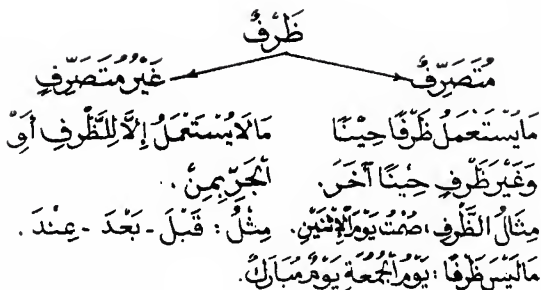 ظَرْفٌ
مُتَصَرِّفٌ
غَيْرُ مُتَصَرِّفٍ
مَا يُسْتَعْمَلُ ظَرْفًا حِيْنًا
وَغَيْرَ ظَرْفٍ حِيْنًا آخَرَ.
مِثَالُ الظَّرْفِ: صُمْتُ يَوْمَ الْإِثْنَيْنِ.
مَا لَيْسَ ظَرْفًا: يَوْمُ الْجُمُعَةِ يَوْمٌ مُبَارَكٌ.
مَا لَا يُسْتَعْمَلُ إِلَّا لِلظَّرْفِ أَوْ
الْجَرِّ بِمِنْ.
مِثْلُ: قَبْلَ - بَعْدَ - عِنْدَ.